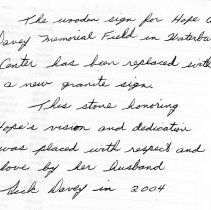 The wooden sign for Hope
Davey Memorial Field in Waterbury
Center has been replaced with
a new granite sign.
This stone honoring
Hope's vision and dedication
was placed with respect and
love by her husband
Dick Davey in 2004